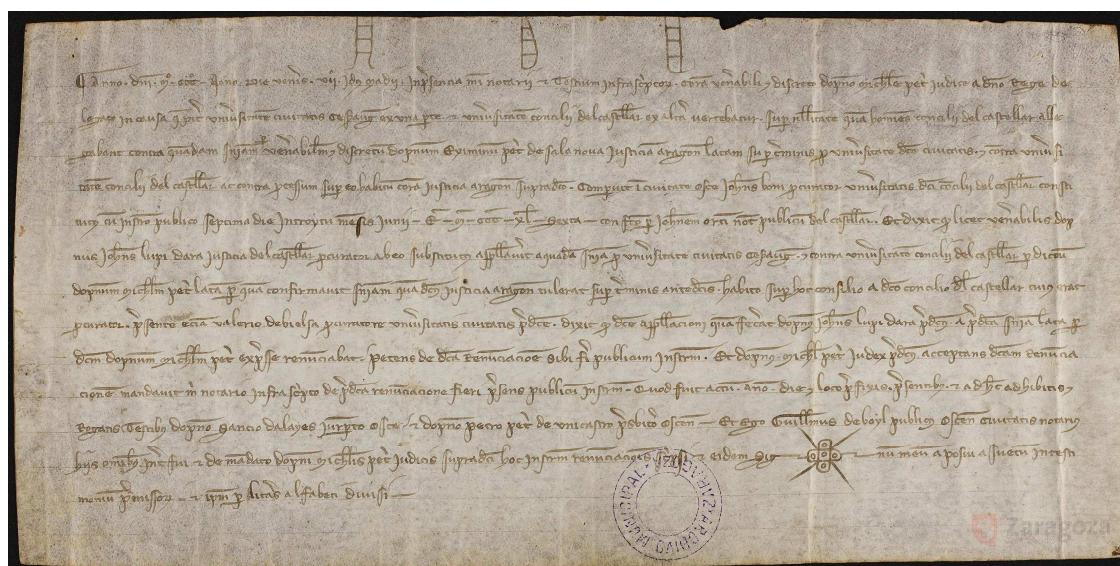 Anno dni mº ccc Nono die ven̄is vii idus madii in p̄sencia mi notarii & Testium infrascriptor Cora ven̄abili & discreto dopno michle pet̄ iudice a dno Rege de
legato in causa q int̄ univ̄sitate civitatis Cesaug ex una p̄te & univ̄sitate concilii del castellar ex alt̄a vertebatur sup nllitate qua homines concilii del castellar alle
gabant contra quadam sniam ven̄abilem & discretu dopnum Eximinu pet̄ de sala nova iusticia aragon latam sup t̄minis p univ̄sitate dc̄e civitatis & contra univ̄si
tate concilii del castellar ac contra p̄cessum sup eo habitu cora iusticia aragon supradc̄o Comparuit i civitate osce Johns boni p̄curator univ̄sitatis dc̄i concilii del castellar consti
tutus cu instro publico septima die introytu mesis iunii E m ccc xl Sexta confc̄o p Johnem orti not publicu del castellar Et dixit q licet ven̄abilis dop
nus Johns lupi dara iusticia del castellar p̄curator ab eo substitut appllavit a quada snia p univ̄sitate civitatis cesaug & contra univ̄sitate concilii del castellar p dictu
dopnum michlm pet̄ lata p qua confirmavit sniam qua dc̄us iusticia aragon tulerat sup t̄minis antedc̄is habito sup hoc consilio a dc̄o concilio del castellar cuius erat
p̄curator p̄sente ecia valerio de bielsa p̄curatore univ̄sitatis civitatis p̄dc̄e dixit q dc̄e appllacioni qua fec̄at dopnus Johns lupi dara p̄dc̄us a p̄dc̄a snia lata p
dc̄m dopnum michlm pet̄ exp̄sse renunciabat petens de dc̄a renunciacioe sibi fi̅ publicum instrm Et dopnus michl pet̄ iudex p̄dc̄us acceptans dc̄am renuncia
cione mandavit m̄ notario infrascpto de p̄dc̄a renunciacione fieri p̄sens publicu instrm Quod fuit actu ano die & loco p̄fixis p̄sentibus & ad hc adhibitis &
Rogatis testibus dopno Sancio dalayes iurp̄ito osce & dopno petro pet̄ de unicastro p̄sbit̄o oscen Et Ego Guillmus de boyl publicus oscen civitatis notarius
hiis omibus int̄fui & de madato dopni michlis pet̄ iudicis supradc̄i hoc instrm renunciacionis scpsi & eidem Sig nu meu aposui asuetu in testi
monium p̄missor & ipm p litas alfabeti divisi
ARCHIVO MUNICIPAL ZARAGOZA
Zaragoza